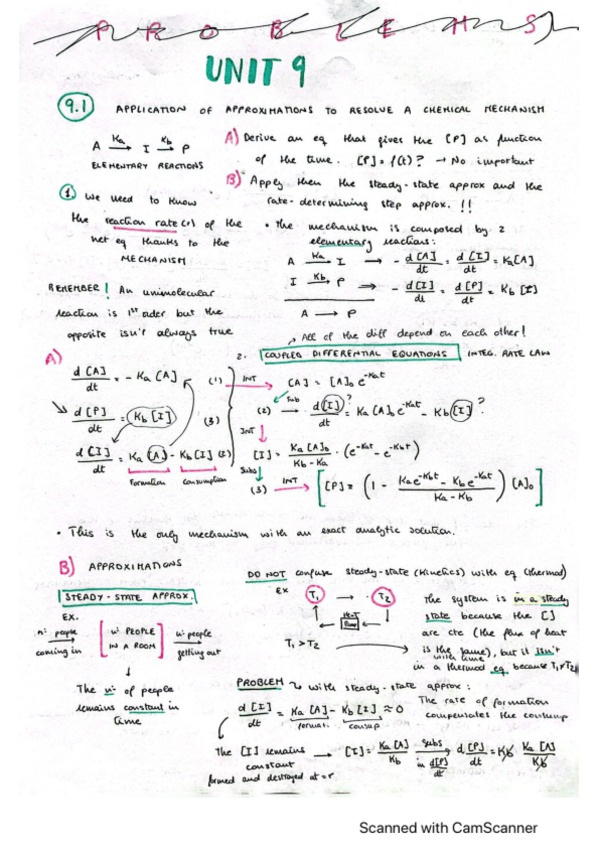 PROBLEMS
UNIT 9
9.1 APPLICATION OF APPROXIMATIONS TO RESOLVE A CHEMICAL MECHANISM
A →Ka I →Kb P
ELEMENTARY REACTIONS
A) Derive an eq that gives the [P] as function
of the time. [P] = f(t)? → No important
B) Apply then the steady-state approx and the
rate-determining step approx. !!
① We need to know
the reaction rate (r) of the
net eq thanks to the
MECHANISM
• the mechanism is composed by 2
elementary reactions:
A →Ka I → - d[A]/dt = d[I]/dt = Ka[A]
I →Kb P → - d[I]/dt = d[P]/dt = Kb [I]
A → P
REMEMBER! An unimolecular
reaction is 1st order but the
opposite isn't always true
↳ All of the diff depend on each other!
A)
2. COUPLED DIFFERENTIAL EQUATIONS INTEG. RATE LAW
d[A]/dt = - Ka [A] (1) INT → [A] = [A]₀ e^-Kat
Sub
d[P]/dt = Kb [I] (3)
(2) → d[I]?/dt = Ka [A]₀ e^-Kat - Kb [I]?
INT
d[I]/dt = Ka [A] - Kb [I] (2)
Formation Consumption
[I] = Ka [A]₀/Kb - Ka · (e^-Kat - e^-Kbt)
Subs
(3) INT → [P] = (1 - Ka e^-Kbt - Kb e^-Kat/Ka - Kb) [A]₀
• This is the only mechanism with an exact analytic solution.
B) APPROXIMATIONS
STEADY-STATE APPROX.
EX.
nº people coming in → [nº PEOPLE IN A ROOM] nº people getting out →
The nº of people
remains constant in
time
DO NOT confuse steady-state (kinetics) with eq (thermod)
EX T₁ → T₂
T₁ > T₂
The system is in a steady
state because the []
are cte (the flux of heat
is the same), but it isn't
with time
in a thermod eq because T₁≠T₂
PROBLEM ↳ with steady-state approx:
d[I]/dt = Ka [A] - Kb [I] ≈ 0
formati. consup
The rate of formation
compensates the consump
The [I] remains
constant
formed and destroyed at = r
→ [I] = Ka [A]/Kb subs in d[P]/dt → d[P]/dt = Kb Ka [A]/Kb
Scanned with CamScanner